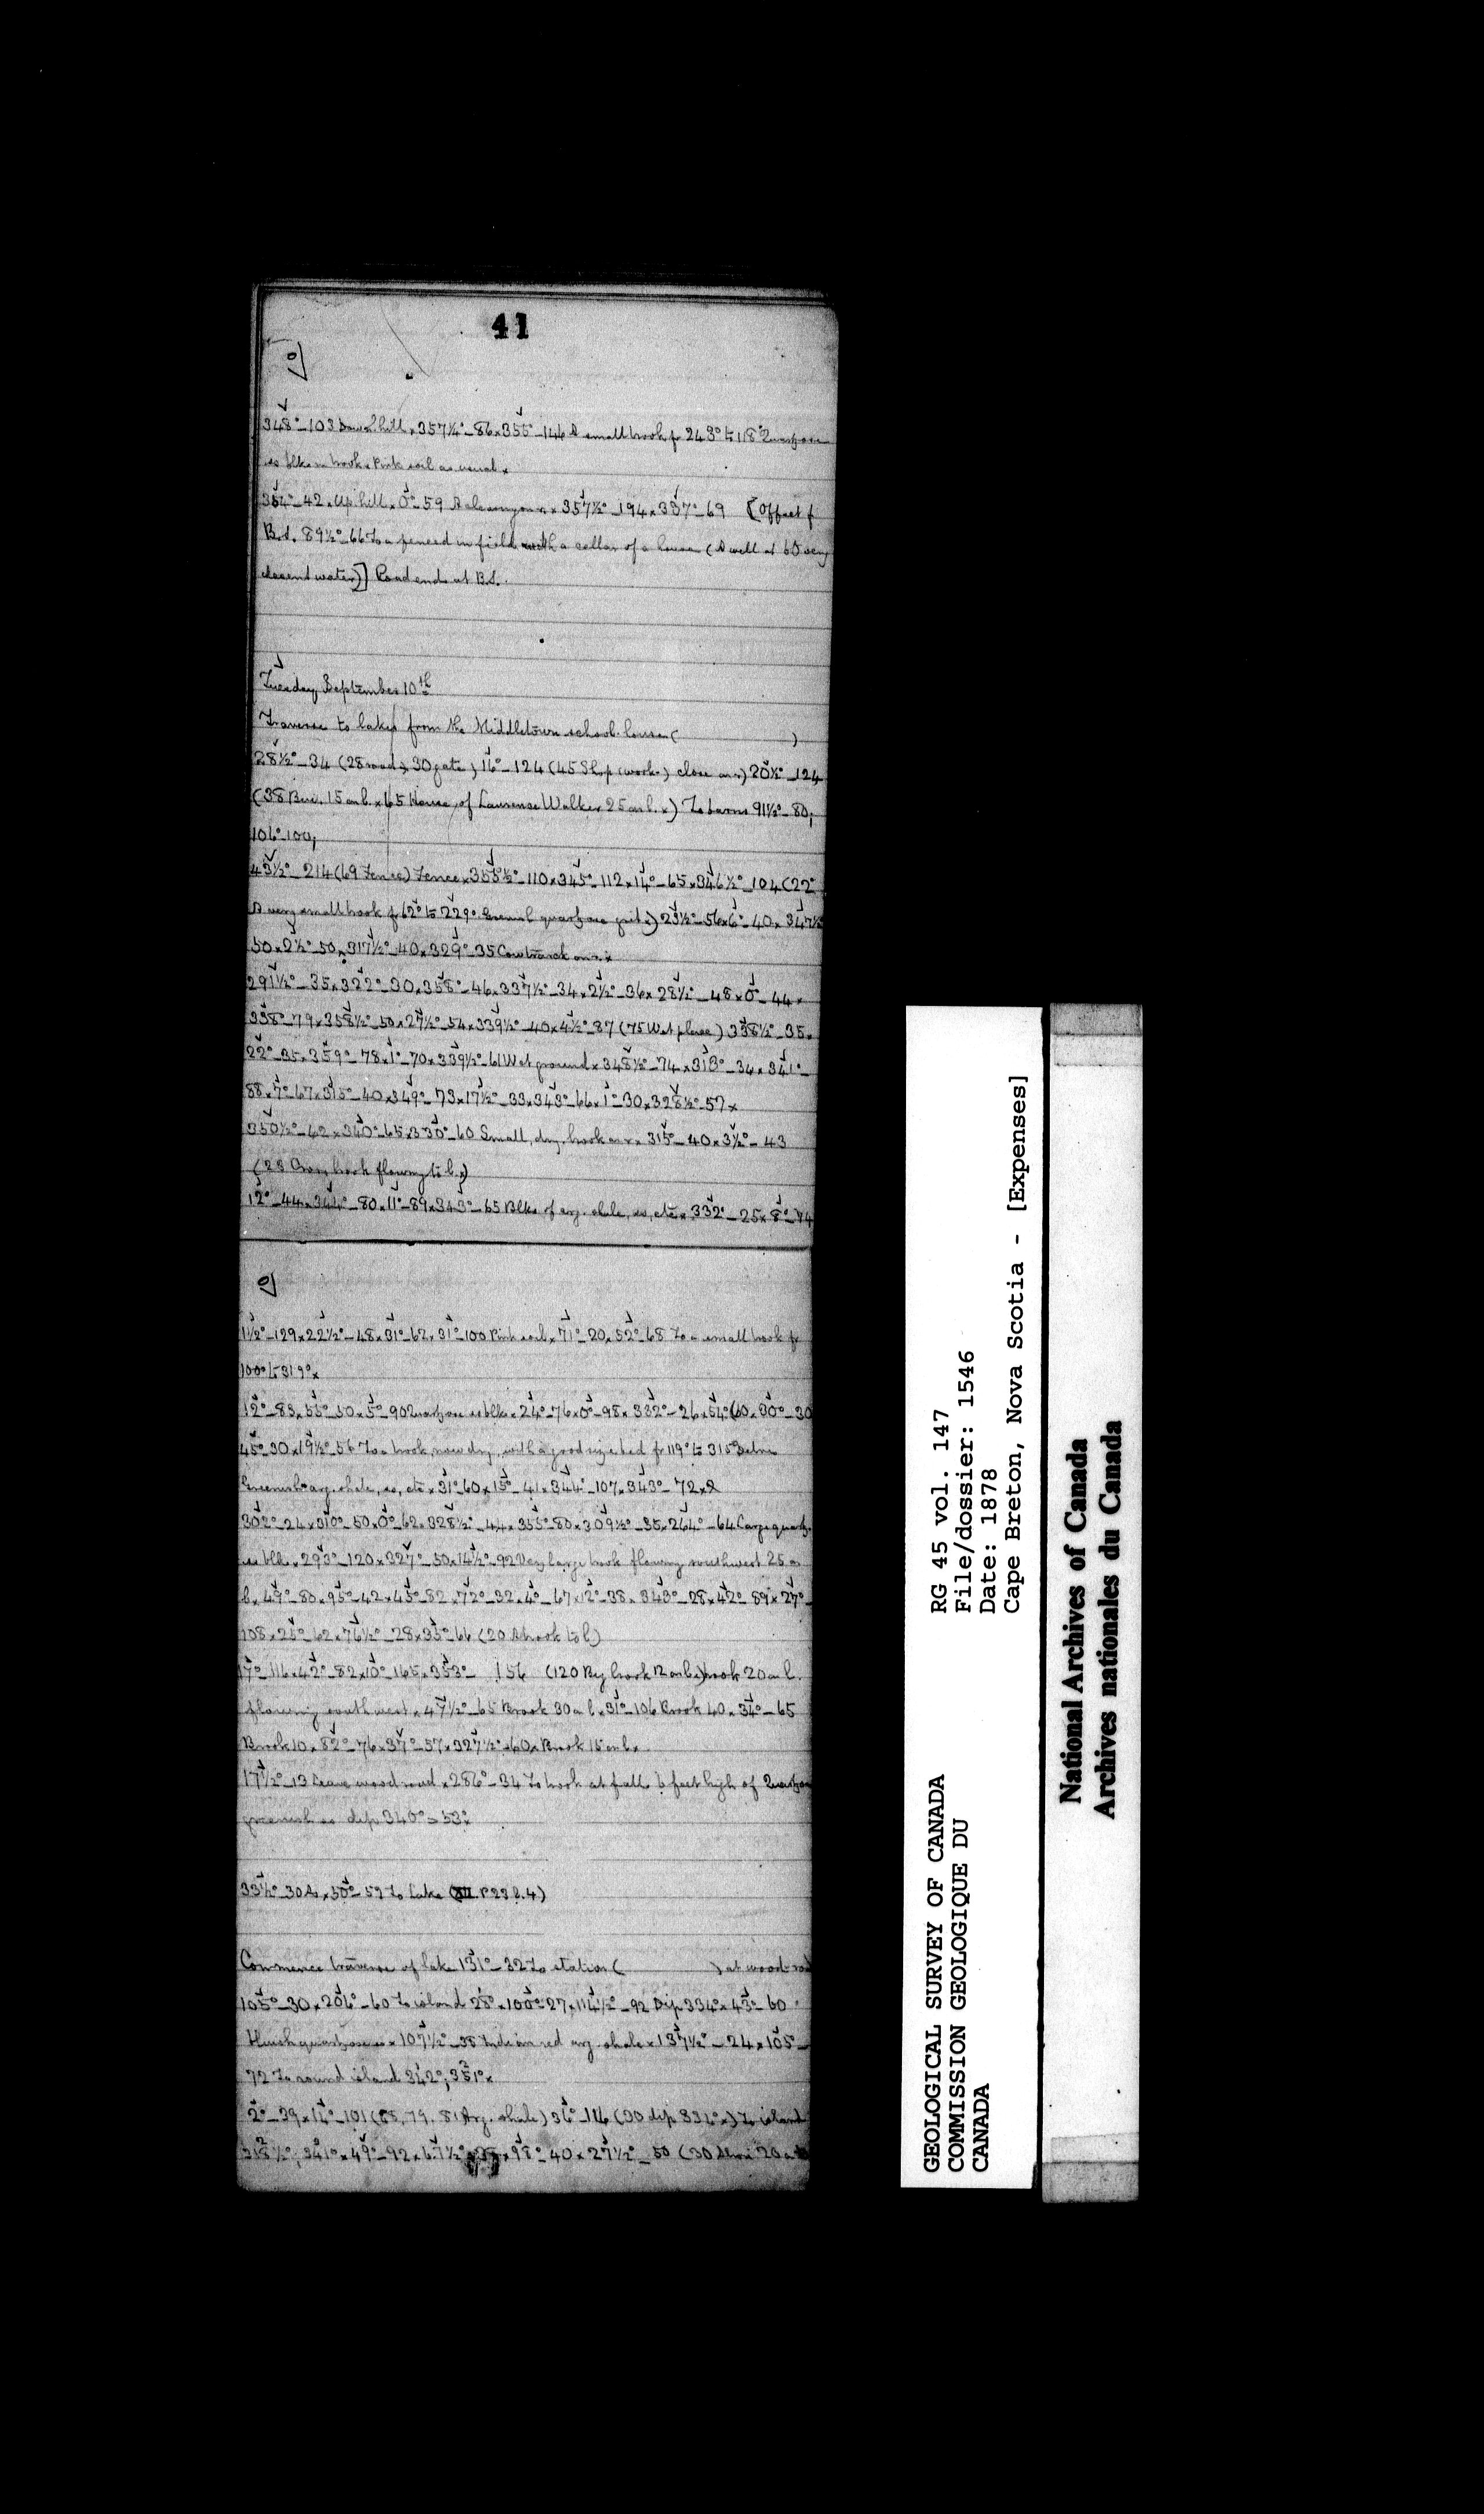 41
348°_103 Down hill x 357¼°_86 x 355°_146 A small brook fr 243° to 118° Quartzose
ss blks in brook x Pink soil as usual x
354°_42 x Up hill x 0°_59 A clearing on r x 357½°_194 x 337°_69 [Offset f
B.S. 89½°_66 To a fenced in field with a cellar of a house (A well at 60 very
decent water)] Road ends at B.S.
Tuesday September 10th
Traverse to lakes from the Middletown school-house ( )
28½°_34 (28 road, 30 gate) 16°_124 (45 Shop (work) close on r) 20½°_124
(38 Barn 15 on l. x 65 House of Laurence Walker 25 on l. x) To barns 91½°_80;
106° 100;
43½°_214 (69 Fence) Fence x 355½°_110 x 345°_112 x 14°_65 x 346½°_104 (22
A very small brook fr 62° to 229° quartzose grit x) 23½°_56 x 6°_40 x 347½
50 x 2½°_50 x 317½°_40 x 329°_35 Cowtrack on r x
291½°_35 x 322°_30 x 358°_46 x 337½°_34 x 2½°_36 x 28½°_48 x 0°_44 x
338°_79 x 358½°_50 x 27½°_54 x 339½°_40 x 4½°_87 (75 Wet place) 338½°_35 x
22°_35 x 359°_78 x 1°_70 x 339½°_61 Wet ground x 348½°_74 x 318°_34 x 341°_
88 x 7°_67 x 315°_40 x 349°_73 x 17½°_33 x 343°_66 x 1°_30 x 328½°_57 x
350½°_62 x 340°_65 x 330°_60 Small, dry, brook on r x 315°_40 x 3½°_43
(28 Cross brook flowing to l. x)
12°_44 x 344°_80 x 11°_89 x 343°_65 Blks of arg. shale, ss, etc x 332°_25 x 8°_74
1½°_129 x 22½°_48 x 31°_62 x 31°_100 Pink soil x 71°_20 x 52°_68 To a small brook fr
100° to 319° x
12°_83 x 55°_50 x 5°_90 Quartzose ss blks x 24°_76 x 0°_98 x 332°_26 x 54° 60 x 30°_30
45°_30 x 19½°_56 To a brook, now dry, with a good size bed fr 119° to 315°
Greenish arg. shale, ss, etc x 31°_60 x 15°_41 x 344°_107 x 343°_72 x
302°_24 x 310°_50 x 0°_62 x 328½°_44 x 355°_80 x 309½°_35 x 264°_64 Large quartz.
ss blk x 293°_120 x 327°_50 x 14½°_92 Very large brook flowing southwest 25 on
l x 49°_80 x 95°_42 x 45°_82 x 72°_32 x 4°_67 x 12°_38 x 343°_28 x 42°_89 x 27°_
108 x 25°_62 x 76½°_28 x 35°_66 (20 A brook to l)
17°_116 x 42°_82 x 10°_165 x 353°_156 (120 Big brook 12 on l. x) brook 20 on l.
flowing southwest x 47½°_65 Brook 30 on l x 31°_106 Brook 40 x 34°_65
Brook 10 x 82°_76 x 37°_57 x 327½°_60 x Brook 15 on l x
17½°_13 Leave wood road x 286°_34 To brook at fall 6 feet high of Quartzose
greenish ss dip 340° > 53°
33½°_30 x 50°_52 To Lake (XII. P 23 l. 4)
Commence traverse of lake 131°_32 To station ( ) at wood-road
105°_30 x 206°_60 To island 28° x 100°_27 x 114½°_92 Dip 334° x 43°_60
Bluish quartzose ss x 107½°_38 Indian red arg. shale x 137½°_24 x 105°_
72 To round island 342°; 351° x
2°_39 x 14°_101 (65, 79, 81 Arg. shale) 36°_116 (30 dip 334° x) To island
318½°; 341° x 49°_92 x 67½° x 98°_40 x 27½°_50 (30
GEOLOGICAL SURVEY OF CANADA
COMMISSION GEOLOGIQUE DU
CANADA
RG 45 vol. 147
File/dossier: 1546
Date: 1878
Cape Breton, Nova Scotia - [Expenses]
National Archives of Canada
Archives nationales du Canada